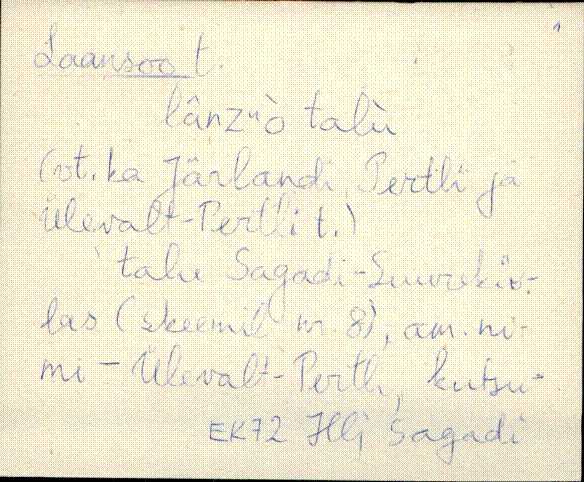 1
Laansoo t.
lânzᵘò talù
(vt. ka Järlandi, Pertli ja
Ülevalt-Pertli t.)
talu Sagadi-Suurekü-
las (skeemil nr. 8), am. ni-
mi – Ülevalt-Pertli, kutsu-
EK72 Hlj Sagadi